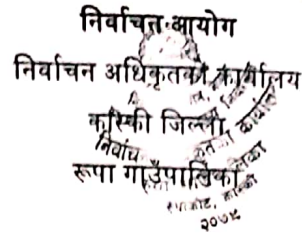 निर्वाचन आयोग
निर्वाचन अधिकृतको कार्यालय
कास्की जिल्ला
रूपा गाउँपालिका
रुपाकोट, कास्की
२०७९